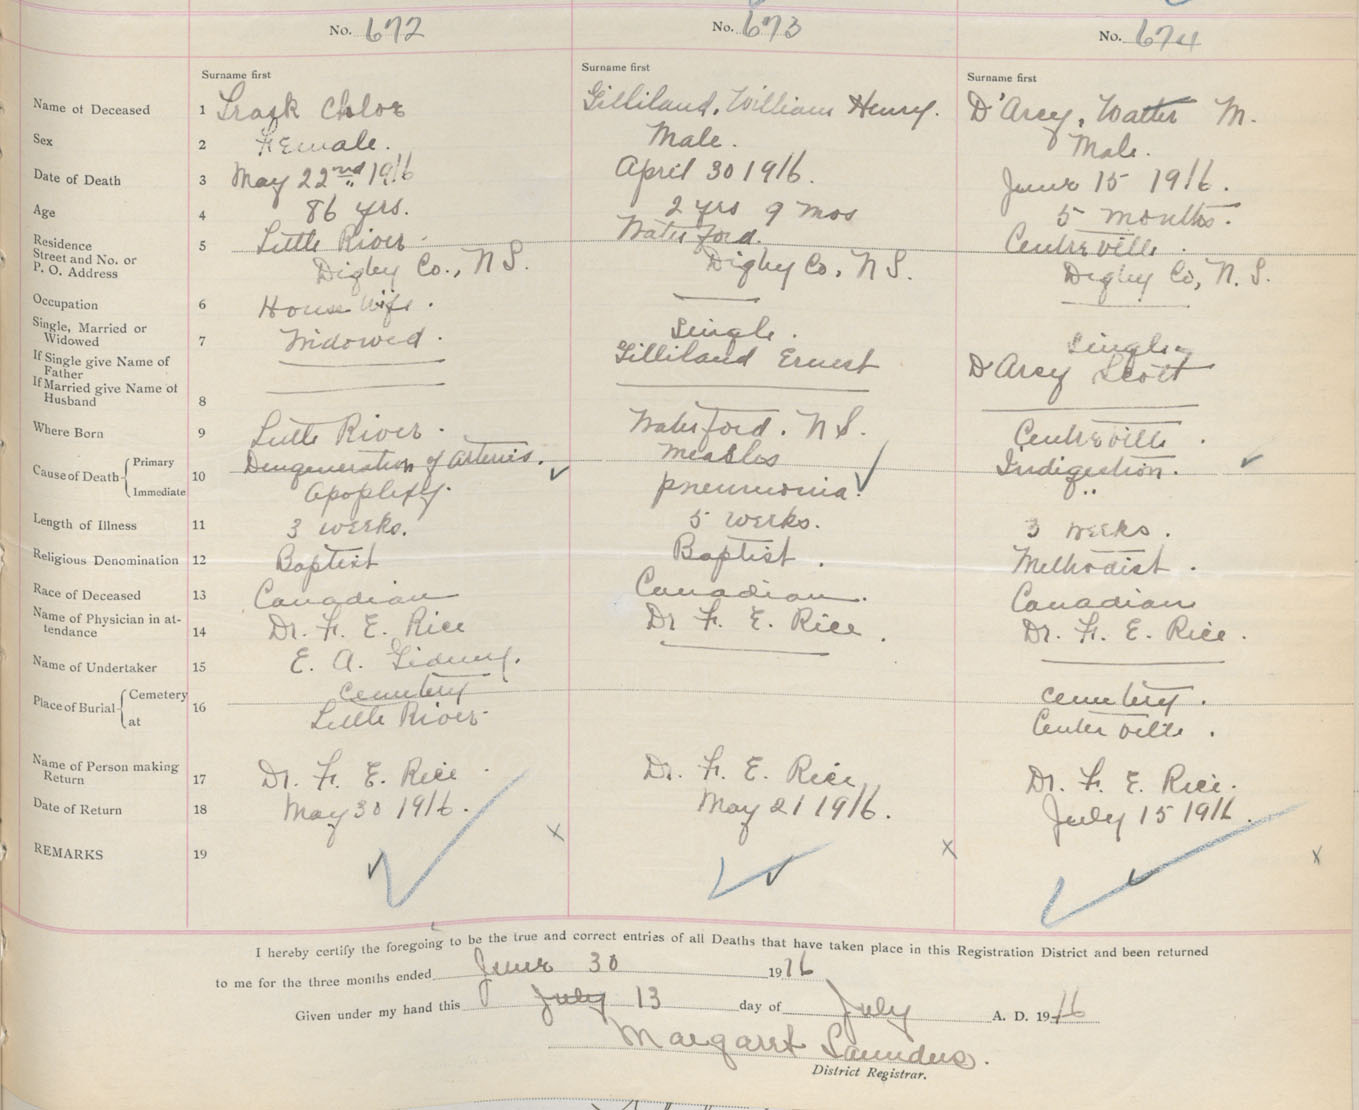 No. 672 No. 673 No. 674
Surname first Surname first Surname first
Name of Deceased 1 Trask Chloe Gilliland, William Henry. D'Arcy, Walter M.
Sex 2 Female. Male. Male.
Date of Death 3 May 22nd 1916 April 30 1916. June 15 1916.
Age 4 86 yrs. 2 yrs 9 mos 5 months.
Residence
Street and No. or 5 Little River. Waterford. Centreville.
P. O. Address Digby Co., N S. Digby Co, N S. Digby Co, N. S.
Occupation 6 House Wife.
Single, Married or
Widowed 7 Widowed. Single. Single.
If Single give Name of
Father Gilliland Ernest D'Arcy Scott
If Married give Name of
Husband 8
Where Born 9 Little River. Waterford. N S. Centreville.
Cause of Death Primary 10 Dengeneration of Arteries. Measles Indigestion.
Immediate Apoplexy. pneumonia. "
Length of Illness 11 3 weeks. 5 weeks. 3 weeks.
Religious Denomination 12 Baptist Baptist. Methodist.
Race of Deceased 13 Canadian Canadian. Canadian
Name of Physician in at-
tendance 14 Dr. F. E. Rice Dr F. E. Rice. Dr. F. E. Rice.
Name of Undertaker 15 E. A. Gidney.
Place of Burial Cemetery 16 Cemetery Cemetery.
at Little River Centerville.
Name of Person making
Return 17 Dr. F. E. Rice. Dr. F. E. Rice Dr. F. E. Rice.
Date of Return 18 May 30 1916. May 21 1916. July 15 1916.
REMARKS 19
I hereby certify the foregoing to be the true and correct entries of all Deaths that have taken place in this Registration District and been returned
to me for the three months ended June 30 1916
Given under my hand this July 13 day of July A. D. 1916
Margaret Saunders.
District Registrar.